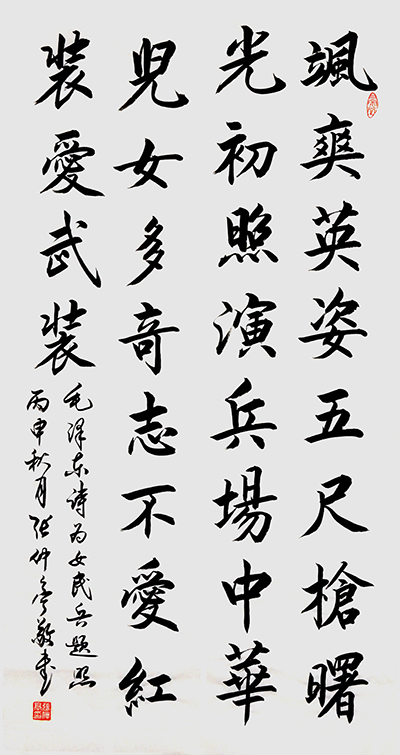 颯爽英姿五尺槍曙
光初照演兵場中華
兒女多奇志不愛紅
裝愛武裝
毛澤東詩為女民兵題照
丙申秋月張仲亭敬書